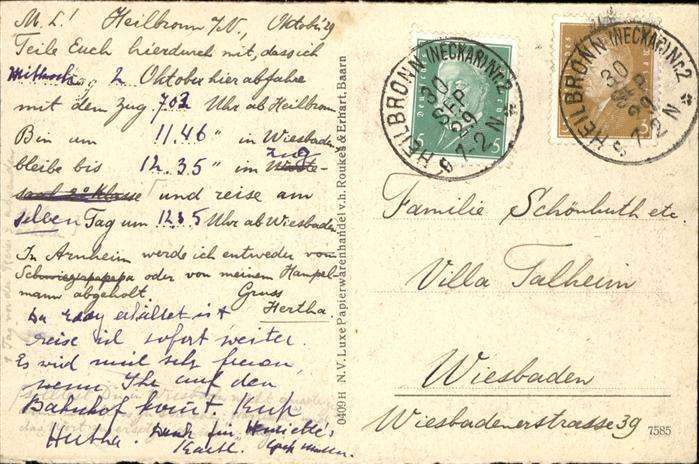 M. L! Heilbronn a/N, Oktob/29
Teile Euch hierdurch mit, dass ich
Mittwoch 2 Oktober hier abfahre
mit dem Zug 702 Uhr ab Heilbronn
Bin um 11.46" in Wiesbaden
bleibe bis 12.35" im
und reise am
selben Tag um 12.35 Uhr ab Wiesbaden
In Arnheim werde ich entweder von
Schwiegerpapapa oder von meinem Hampel-
mann abgeholt. Gruss
Hertha.
Da erkältet ist
reise ich sofort weiter.
Es wird mich sehr freuen,
wenn Ihr auf den
Bahnhof kommt.
Hertha. Dank für Henriette's
Karte.
0409 H N.V. Luxe Papierwarenhandel v.h. Roukes & Erhart. Baarn
HEILBRONN (NECKAR) Nr 2
30 SEP 29
1-2 N
5
HEILBRONN (NECKAR) Nr 2
30 SEP 29
1-2 N
Familie Schönhuth etc.
Villa Talheim
Wiesbaden
Wiesbadenerstrasse 39
7585